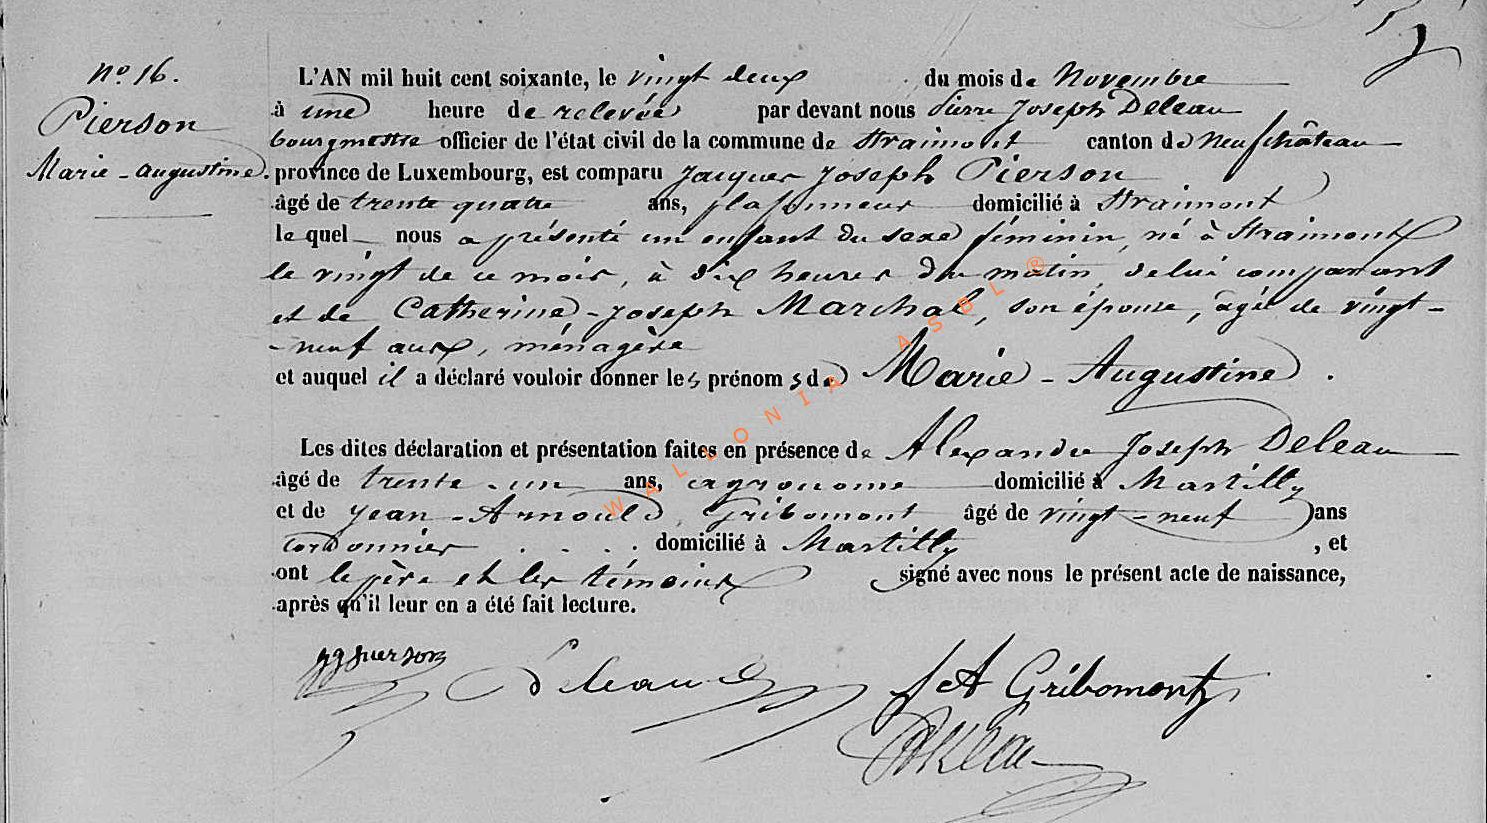 nº 16.
Pierson
Marie - augustine.
L'AN mil huit cent soixante, le vingt deux du mois de Novembre
à une heure de relevée par devant nous Pierre Joseph Deleau
bourgmestre officier de l'état civil de la commune de Straimont canton de Neufchâteau
province de Luxembourg, est comparu Jacques Joseph Pierson
âgé de trente quatre ans, plafonneur domicilié à Straimont
lequel nous a présenté un enfant du sexe féminin, né à Straimont
le vingt de ce mois, à dix heures du matin, de lui comparant
et de Catherine - Joseph Marchal, son épouse, âgée de vingt -
- neuf ans, ménagère
et auquel il a déclaré vouloir donner les prénoms de Marie - Augustine.
Les dites déclaration et présentation faites en présence de Alexandre Joseph Deleau
âgé de trente - un ans, agronome domicilié à Martilly
et de Jean - Arnould Gribomont âgé de vingt - neuf ans
cordonnier . . . . domicilié à Martilly , et
ont le père et les témoins signé avec nous le présent acte de naissance,
après qu'il leur en a été fait lecture.
JJ pierson Deleau JA Gribomont
WALLONIA ASBL ®